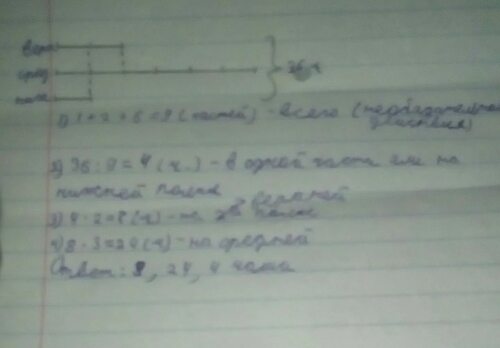 верх
сред 36 ч
ниж
1) 1 + 2 + 6 = 9 (частей) - всего (необязательное
действие)
2) 36 : 9 = 4 (ч.) - в одной части или на
нижней полке
3) 4 · 2 = 8 (ч) - на верхней полке
4) 8 · 3 = 24 (ч) - на средней
Ответ: 8, 24, 4